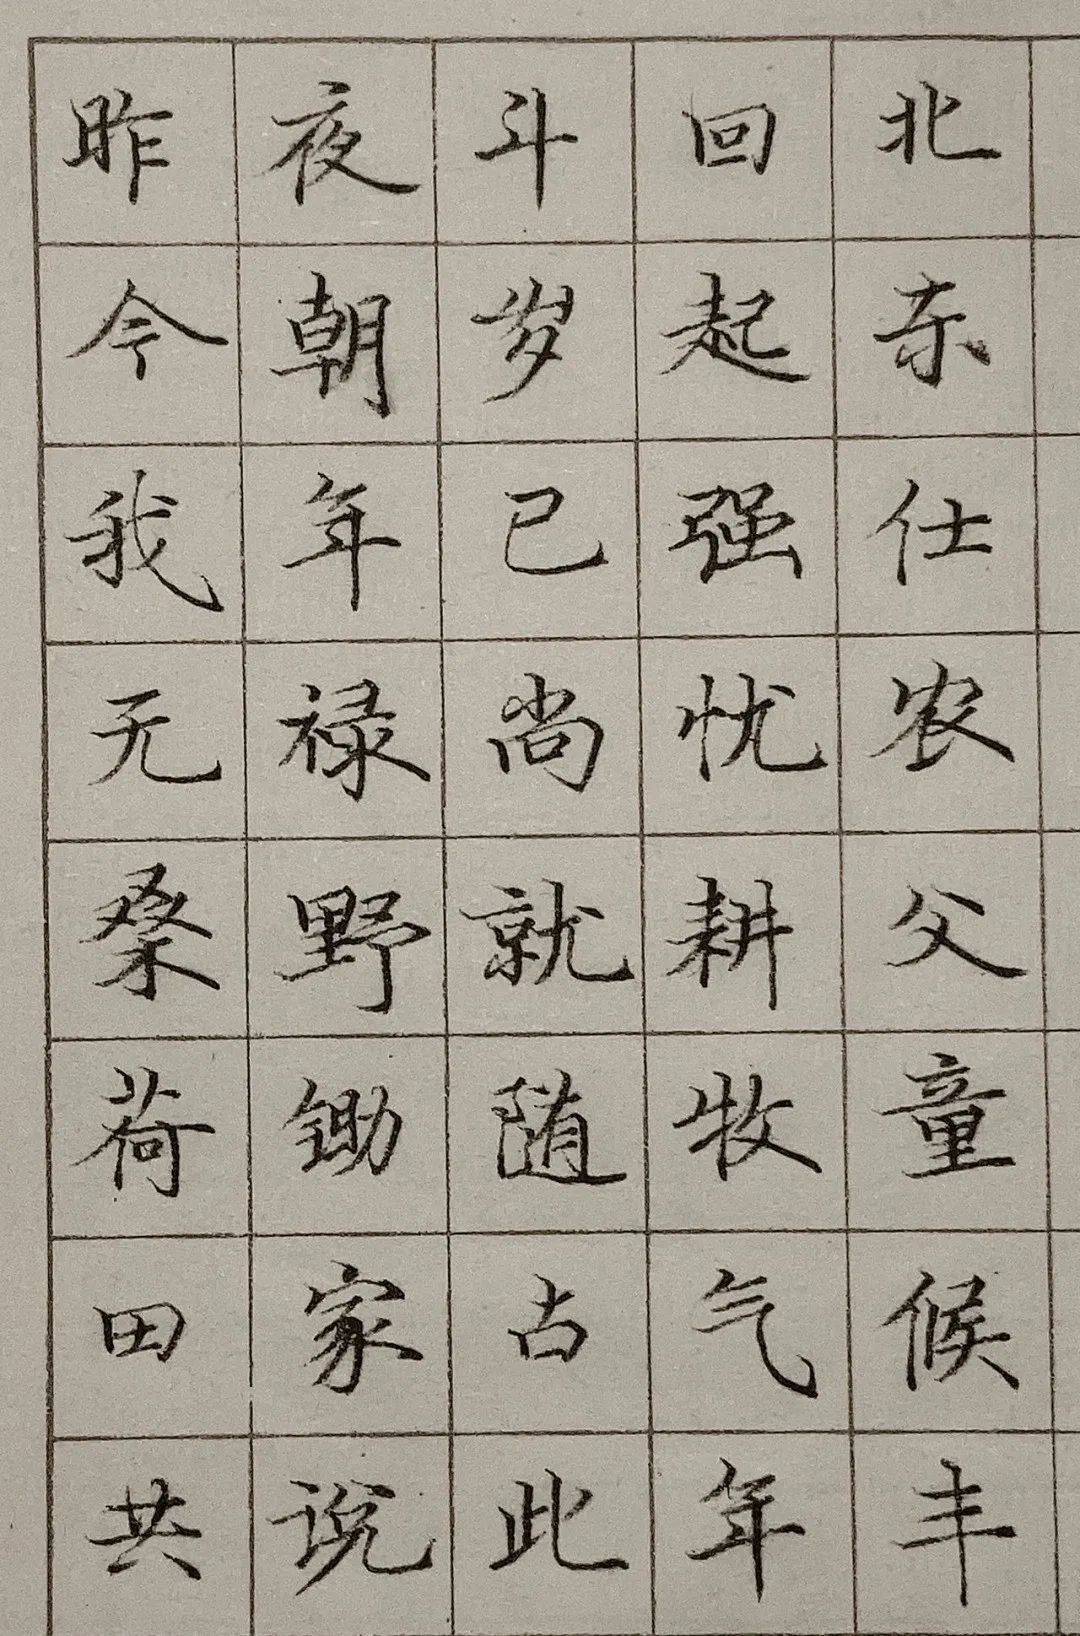 昨夜斗回北
今朝岁起东
我年已强仕
无禄尚忧农
桑野就耕父
荷锄随牧童
田家占气候
共说此年丰